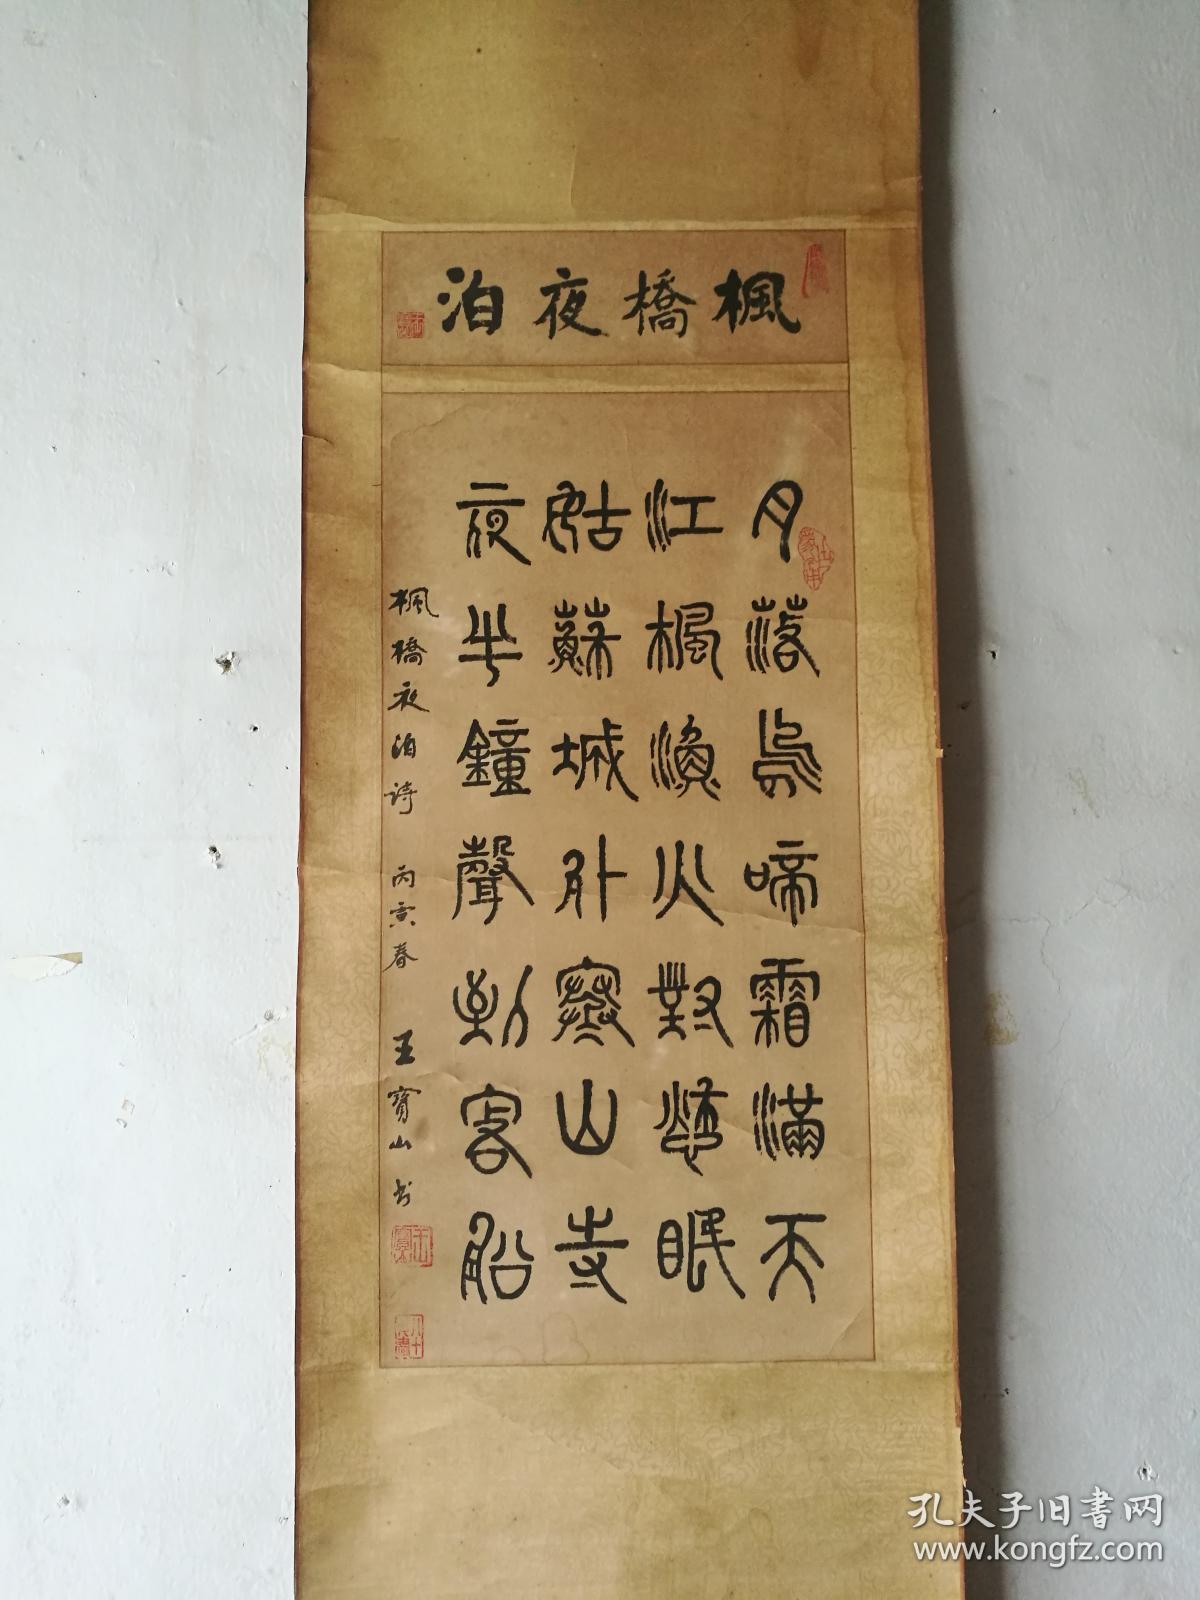 楓橋夜泊
月落烏啼霜滿天
江楓漁火對愁眠
姑蘇城外寒山寺
夜半鐘聲到客船
楓橋夜泊詩 丙寅春 王寶山书
孔夫子旧書网
www.kongfz.com